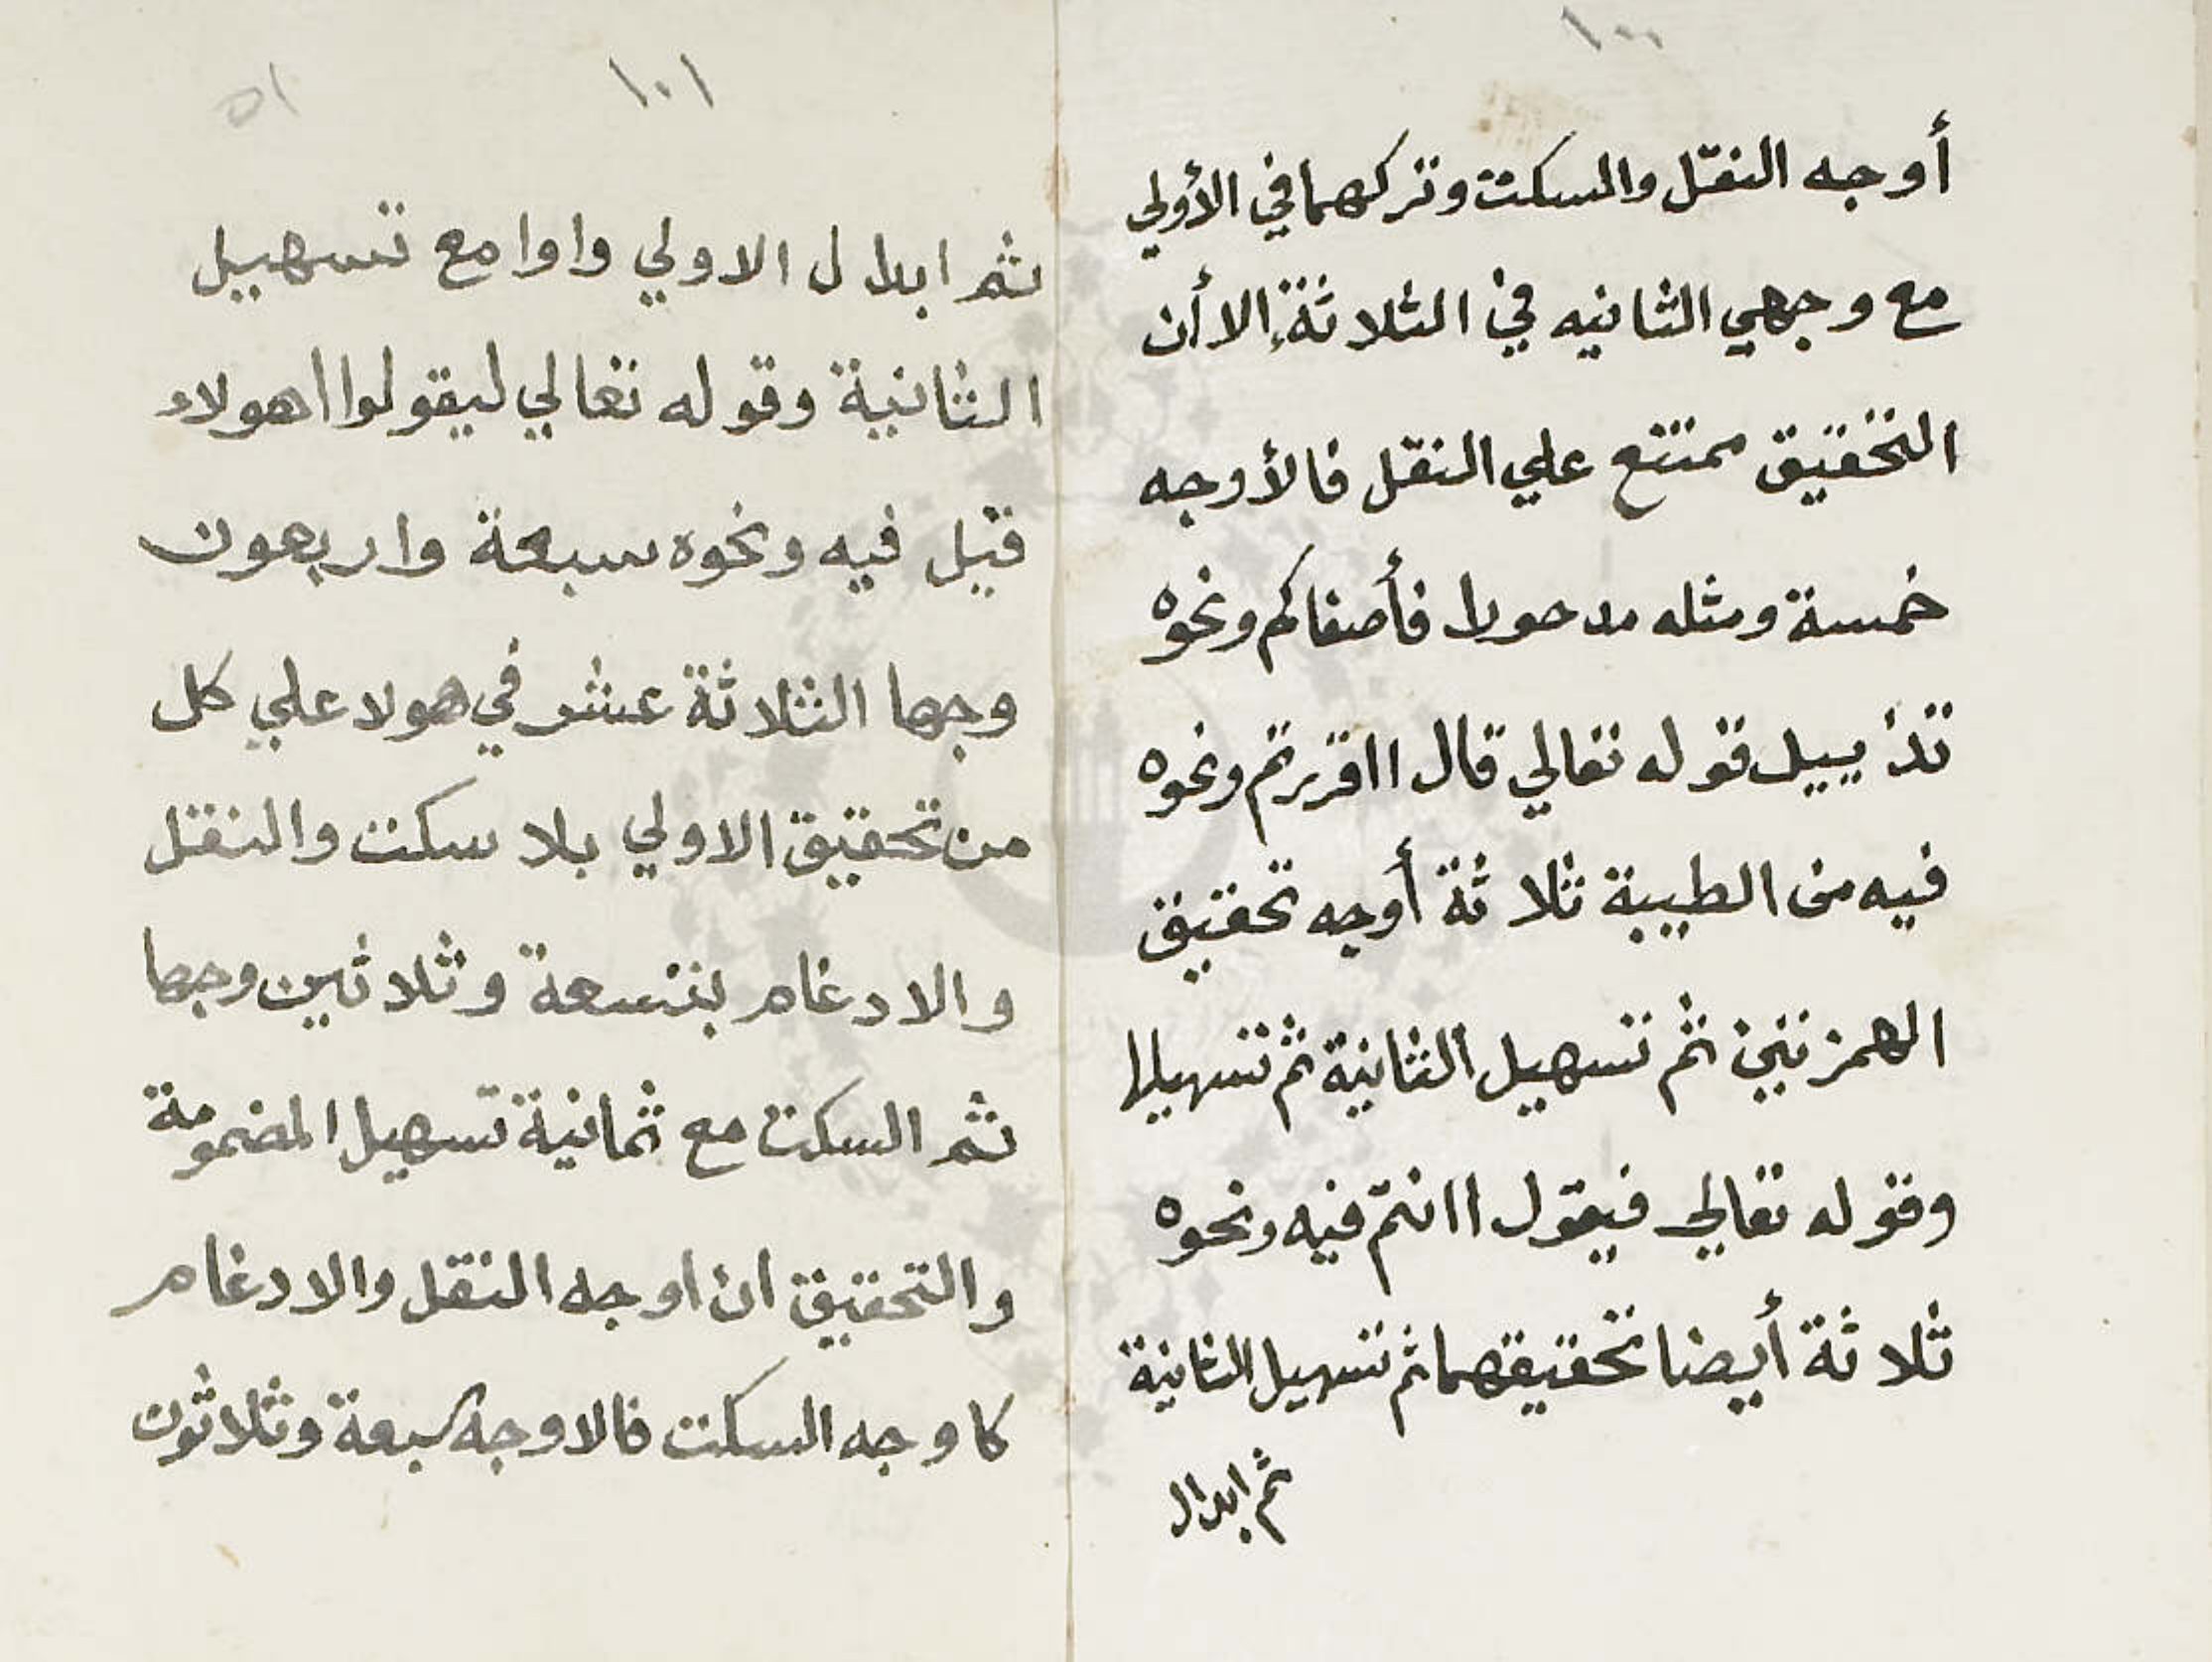 ١٠٠
أوجه النقل والسكت وتركهما في الأولي
مع وجهي الثانيه في الثلاثة إلا أن
التحقيق ممتنع علي النقل فالأوجه
خمسة ومثله مدحورا فأصفاكم ونحوه
تذييل قوله تعالي قال ااقررتم ونحوه
فيه من الطيبة ثلاثة أوجه تحقيق
الهمزتين ثم تسهيل الثانية ثم تسهيلها
وقوله تعالي فيقول اانتم فيه ونحوه
ثلاثة أيضا تحقيقهما ثم تسهيل الثانية
ثم ابدال
١٠١
٥١
ثم ابدال الاولي واوا مع تسهيل
الثانية وقوله تعالي ليقولوا اهولاء
قيل فيه ونحوه سبعة واربعون
وجها الثلاثة عشر في هولا علي كل
من تحقيق الاولي بلا سكت والنقل
والادغام بتسعة وثلاثين وجها
ثم السكت مع ثمانية تسهيل المضمومة
والتحقيق ان اوجه النقل والادغام
كاوجه السكت فالاوجه سبعة وثلاثون